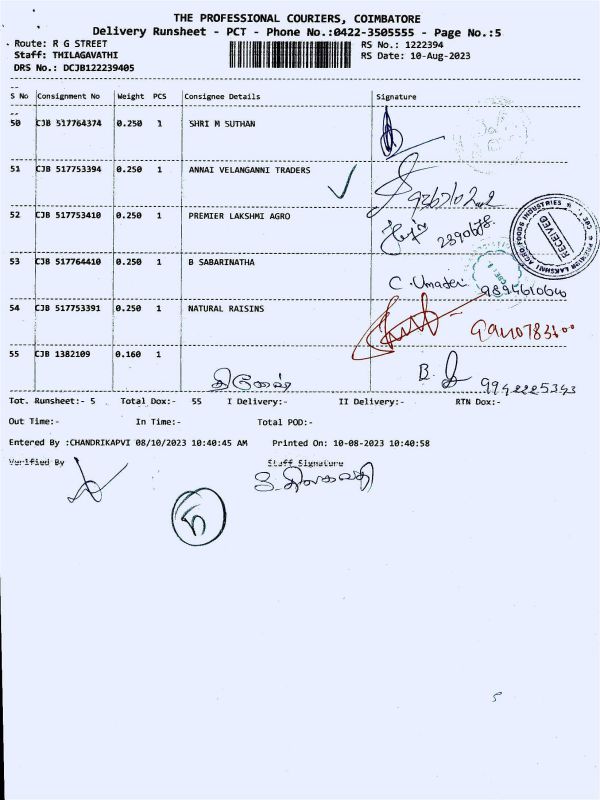 THE PROFESSIONAL COURIERS, COIMBATORE
Delivery Runsheet - PCT - Phone No.:0422-3505555 - Page No.:5
Route: R G STREET RS No.: 1222394
Staff: THILAGAVATHI RS Date: 10-Aug-2023
DRS No.: DCJB122239405
S No Consignment No Weight PCS Consignee Details Signature
50 CJB 517764374 0.250 1 SHRI M SUTHAN
51 CJB 517753394 0.250 1 ANNAI VELANGANNI TRADERS
52 CJB 517753410 0.250 1 PREMIER LAKSHMI AGRO
RECEIVED
53 CJB 517764410 0.250 1 B SABARINATHA
C. Umadevi
54 CJB 517753391 0.250 1 NATURAL RAISINS
55 CJB 1382109 0.160 1
B. 9942225343
Tot. Runsheet:- 5 Total Dox:- 55 I Delivery:- II Delivery:- RTN Dox:-
Out Time:- In Time:- Total POD:-
Entered By :CHANDRIKAPVI 08/10/2023 10:40:45 AM Printed On: 10-08-2023 10:40:58
Verified By Staff Signature
5